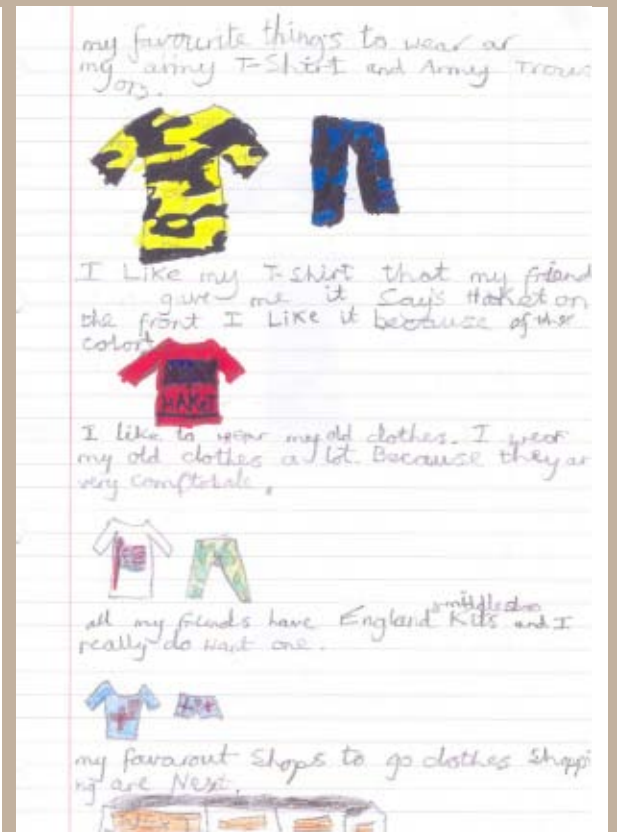 my favourite things to wear ar
my army T-Shirt and Army Trous
ors.
I Like my T-shirt that my friend
gave me it Says HaKet on
the front I Like it because of the
colors
HAKET
I like to wear my old clothes. I wear
my old clothes a lot. Because they ar
very comftobale.
all my friends have England Kits and I
really do want one.
my favarout Shops to go clothes Shoppi
ng are Next.